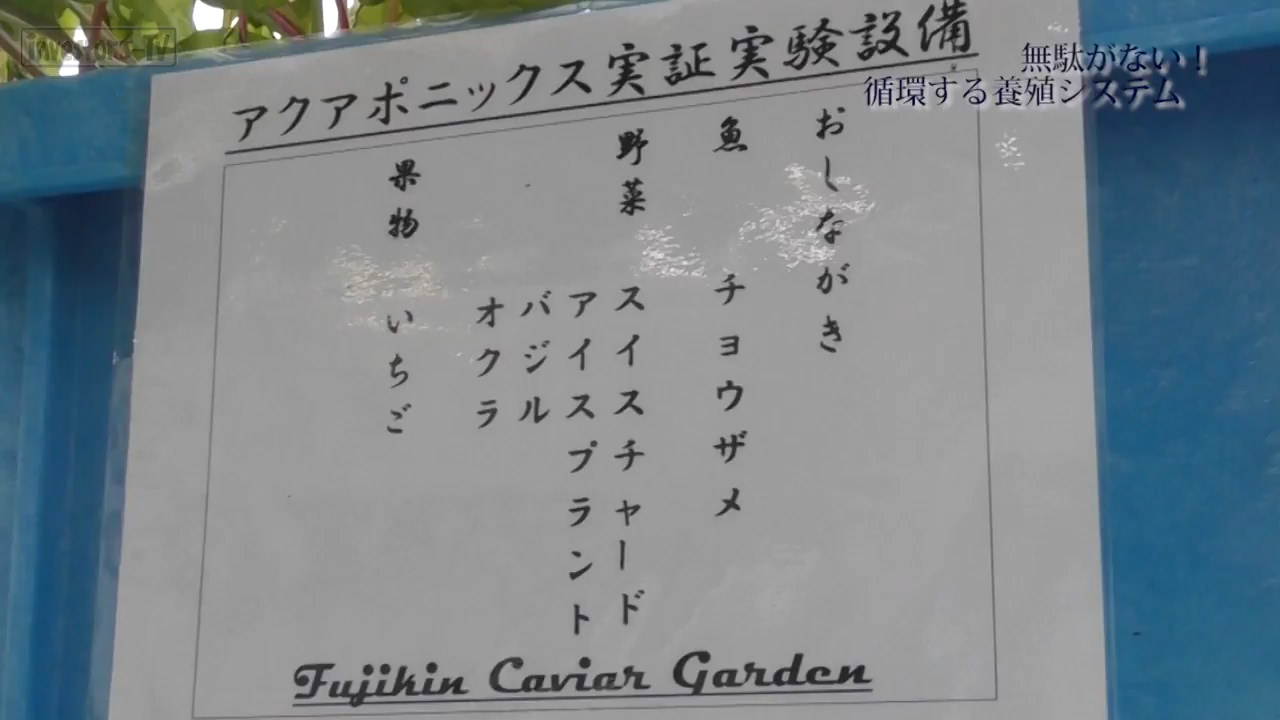 investors-TV
無駄がない！
循環する養殖システム
アクアポニックス実証実験設備
おしながき
魚 チョウザメ
野菜 スイスチャード
アイスプラント
バジル
オクラ
果物 いちご
Fujikin Caviar Garden